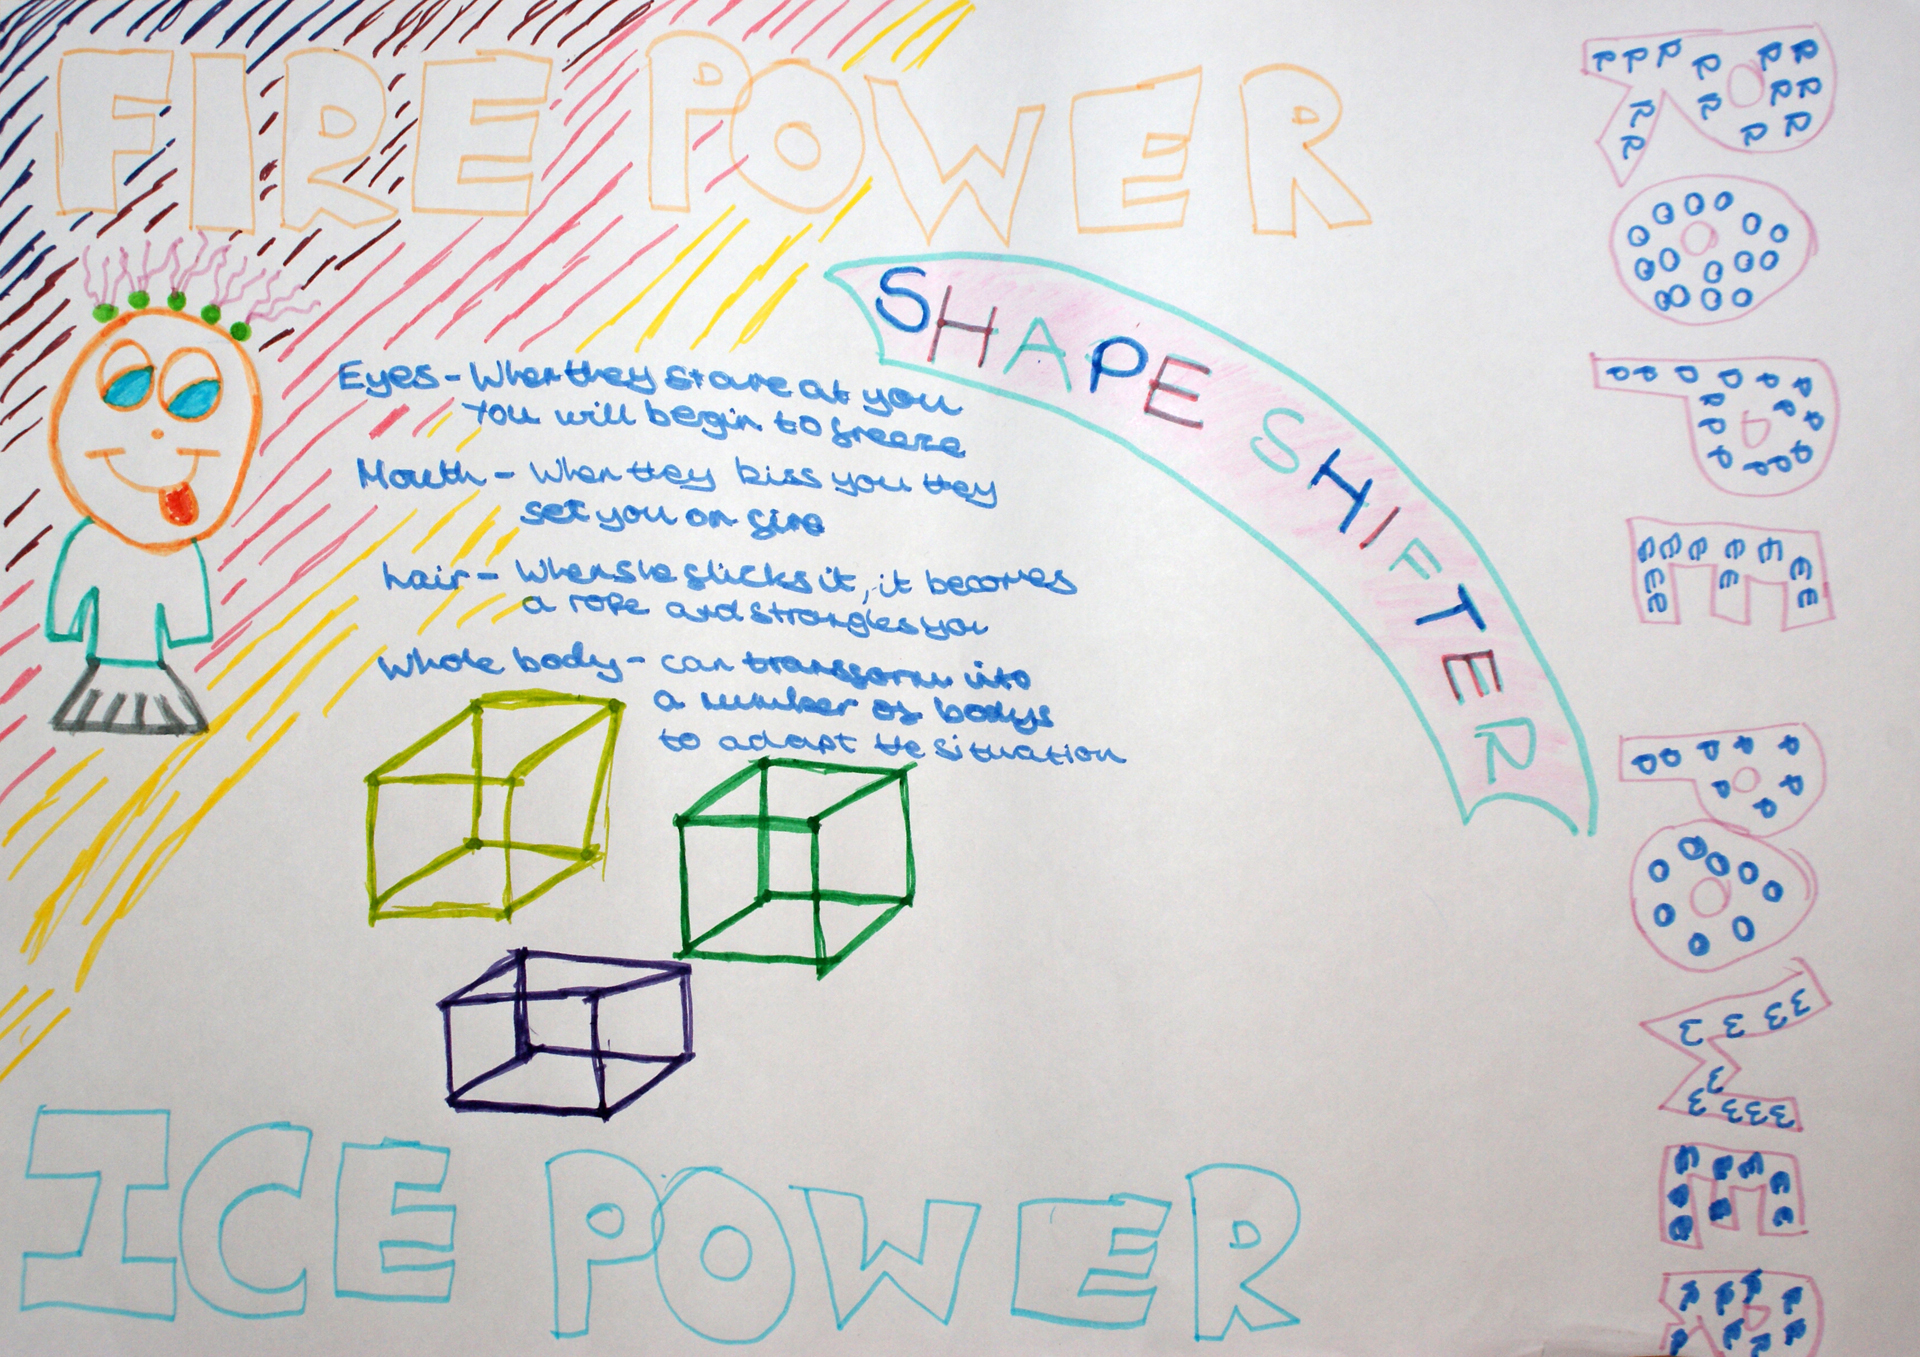 FIRE POWER
SHAPE SHIFTER
Eyes - When they stare at you
you will begin to freeze
Mouth - When they kiss you they
set you on fire
hair - When she flicks it, it becomes
a rope and strangles you
Whole body - can transform into
a number of bodys
to adapt the situation
ICE POWER
ROPE POWER